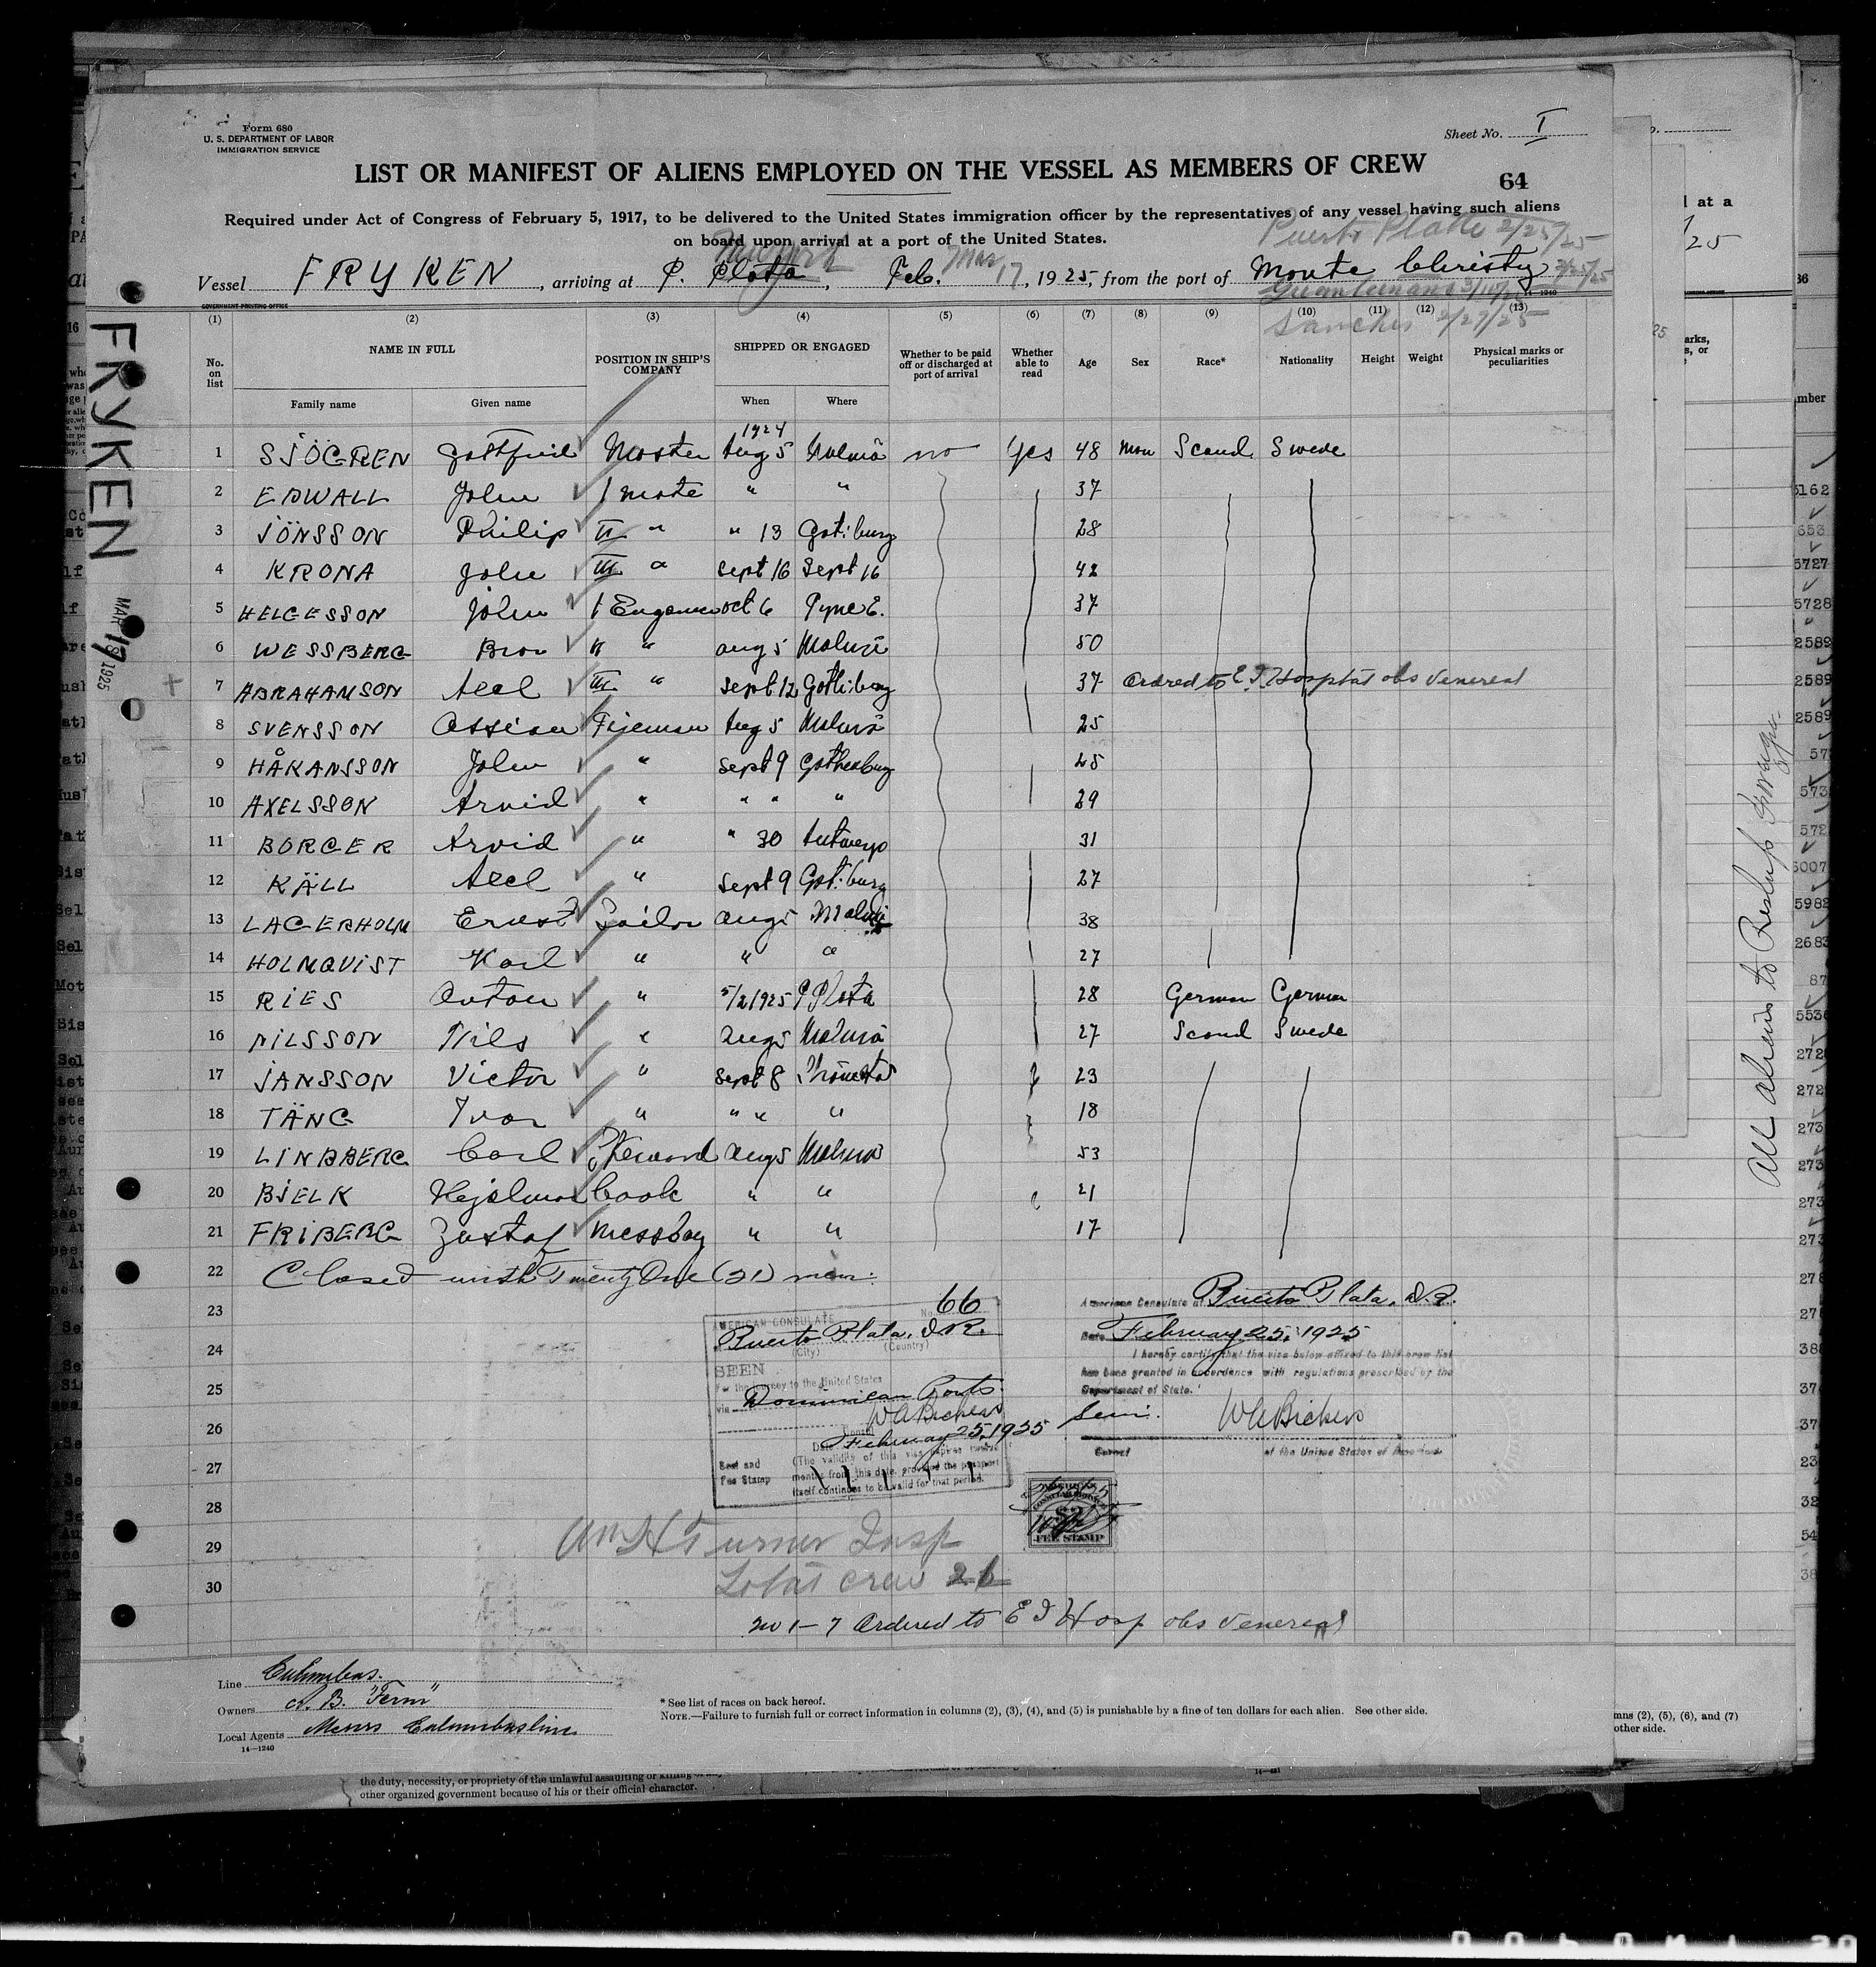 Form 680
U. S. DEPARTMENT OF LABOR
IMMIGRATION SERVICE
Sheet No. I
LIST OR MANIFEST OF ALIENS EMPLOYED ON THE VESSEL AS MEMBERS OF CREW
64
Required under Act of Congress of February 5, 1917, to be delivered to the United States immigration officer by the representatives of any vessel having such aliens
on board upon arrival at a port of the United States.
Puerto Plata 2/25/25
New York Mar 17
Vessel FRYKEN, arriving at P. Plata, Feb. , 1925, from the port of Monte Christy 2/25/25
Guantanamo 3/10/25
Sanchez 2/27/25
GOVERNMENT PRINTING OFFICE 14—1240
(1) (2) (3) (4) (5) (6) (7) (8) (9) (10) (11) (12) (13)
No. on list NAME IN FULL POSITION IN SHIP'S COMPANY SHIPPED OR ENGAGED Whether to be paid off or discharged at port of arrival Whether able to read Age Sex Race* Nationality Height Weight Physical marks or peculiarities
Family name Given name When Where
1924
1 SJÖGREN Gottfried Master Aug 5 Malmö no Yes 48 Man Scand Swede
2 EDWALL John I mate " " 37
3 JÖNSSON Philip II " " 13 Gotiburg 28
4 KRONA John III " Sept 16 Sept 16 42
5 HELGESSON John I Engener oct 6 Tyne E. 37
6 WESSBERG Bror II " aug 5 Malmö 50
7 ABRAHAMSON Axel III " Sept 12 Gotheburg 37 Ordred to E I Hospital obs venereal
8 SVENSSON Fijerman Aug 5 Malmö 25
9 HÅKANSSON John " Sept 9 Gothenburg 25
10 AXELSSON Arvid " " " " 29
11 BORGER Arvid " " 30 Antwerp 31
12 KÄLL Axel " Sept 9 Gotiburg 27
13 LAGERHOLM Ernst Sailor aug 5 Malmö 38
14 HOLMQVIST Karl " " " 27
15 RIES Anton " 5/2 1925 P Plata 28 German German
16 NILSSON Nils " Aug 5 Malmö 27 Scand Swede
17 JANSSON Victor " Sept 8 23
18 TÄNG Ivar " " " " 18
19 LINDBERG Carl Steward aug 5 Malmö 53
20 BJELK Hjalmar Cook " " 21
21 FRIBERG Gustaf Messboy " " 17
22 Closed with Twenty One (21) men.
23
24
25
26
27
28
29
30
AMERICAN CONSULATE No. 66
Puerto Plata, D.R.
(City) (Country)
SEEN
For the journey to the United States
via Dominican Ports.
W A Bickers
Consul
Date February 25, 1925
(The validity of this visa expires twelve
months from this date, provided the passport
itself continues to be valid for that period.
Seal and
Fee Stamp
American Consulate at Puerto Plata, D.R.
Date February 25, 1925
I hereby certify that the visa below affixed to this crew list
has been granted in accordance with regulations prescribed by the
Department of State.
W A Bickers
Consul of the United States of America
$2
FEE STAMP
Wm H Turner Insp
Total crew 21
No 1 – 7 Ordered to E I Hosp obs venereal
Line Columbus.
Owners A. B. "Ferm"
Local Agents Messrs Columbusline
14—1240
* See list of races on back hereof.
NOTE.—Failure to furnish full or correct information in columns (2), (3), (4), and (5) is punishable by a fine of ten dollars for each alien. See other side.
FRYKEN
MAR 17 1925
All aliens to Reship
mns (2), (5), (6), and (7)
other side.
the duty, necessity, or propriety of the unlawful assaulting or killing
other organized government because of his or their official character.